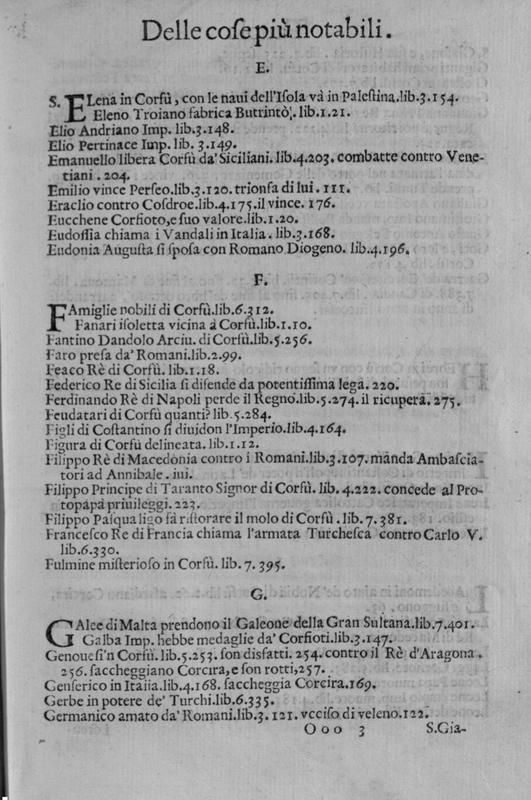 Delle coſe più notabili.
E.
S. ELena in Corfù, con le naui dell'Iſola và in Paleſtina.lib.3.154.
Eleno Troiano fabrica Butrintò. lib.1.21.
Elio Andriano Imp. lib.3.148.
Elio Pertinace Imp. lib. 3.149.
Emanuello libera Corfù da' Siciliani. lib.4.203. combatte contro Vene-
tiani . 204.
Emilio vince Perſeo.lib.3.120. trionfa di lui . 111.
Eraclio contro Coſdroe.lib.4.175.il vince. 176.
Eucchene Corfioto,e ſuo valore.lib.1.20.
Eudoſſia chiama i Vandali in Italia. lib.3.168.
Eudonia Auguſta ſi ſpoſa con Romano Diogeno. lib.4.196.
F.
FAmiglie nobili di Corfù.lib.6.312.
Fanari iſoletta vicina à Corfù.lib.1.10.
Fantino Dandolo Arciu. di Corfù.lib.5.256.
Faro preſa da' Romani.lib.2.99.
Feaco Rè di Corfù. lib.1.18.
Federico Re di Sicilia ſi difende da potentiſſima lega. 220.
Ferdinando Rè di Napoli perde il Regno.lib.5.274. il ricupera. 275.
Feudatari di Corfù quanti? lib.5.284.
Figli di Coſtantino ſi diuidon l'Imperio.lib.4.164.
Figura di Corfù delineata. lib.1.12.
Filippo Rè di Macedonia contro i Romani.lib.3.107. manda Ambaſcia-
tori ad Annibale . iui.
Filippo Principe di Taranto Signor di Corfù. lib. 4.222. concede al Pro-
topapà priuileggi. 223.
Filippo Paſqualigo fà riſtorare il molo di Corfù . lib. 7. 381.
Franceſco Re di Francia chiama l'armata Turcheſca contro Carlo V.
lib.6.330.
Fulmine miſterioſo in Corfù. lib. 7. 395.
G.
GAlee di Malta prendono il Galeone della Gran Sultana.lib.7.401.
Galba Imp. hebbe medaglie da' Corfioti.lib.3.147.
Genoueſi'n Corfù. lib.5.253. ſon disfatti. 254. contro il Rè d'Aragona .
256. ſaccheggiano Corcira,e ſon rotti,257.
Genſerico in Italia.lib.4.168. ſaccheggia Corcira.169.
Gerbe in potere de' Turchi.lib.6.335.
Germanico amato da' Romani.lib.3. 121. vcciſo di veleno.122.
Ooo 3 S.Gia-